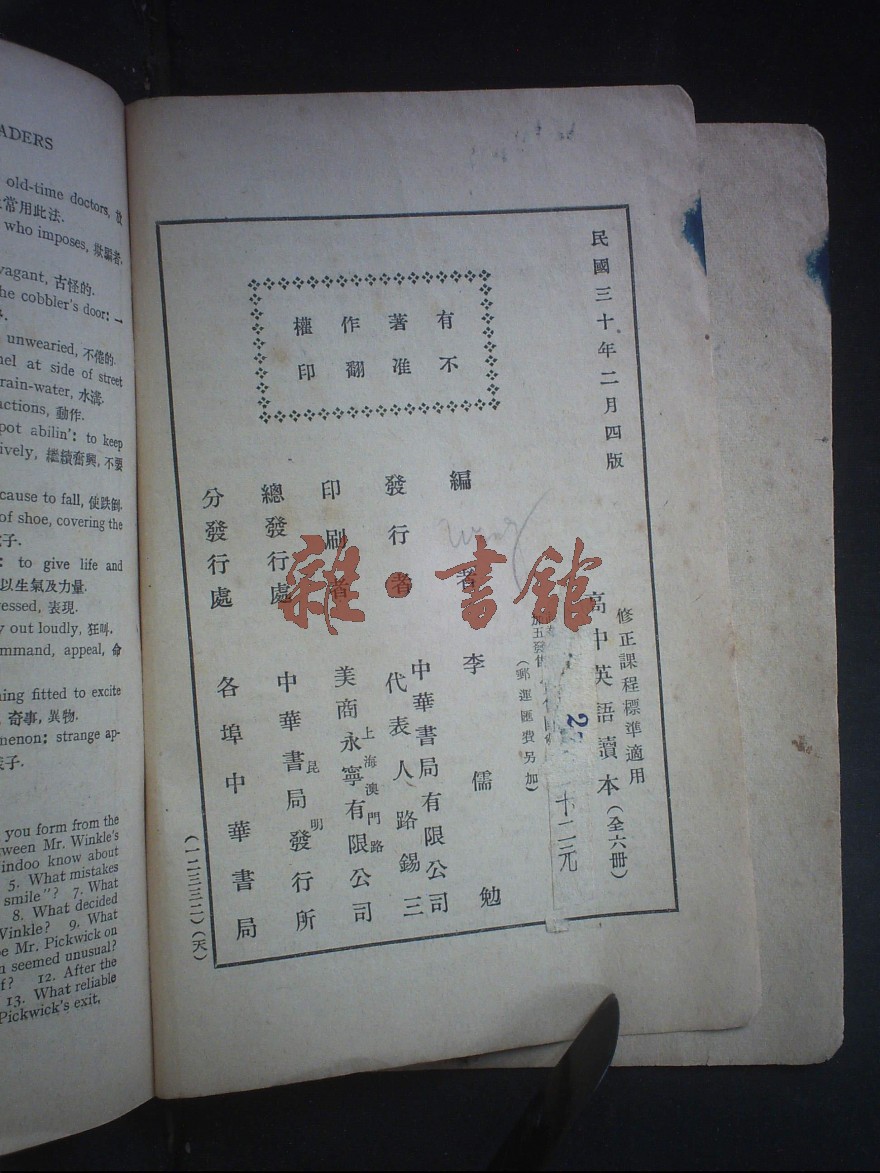 ADERS
old-time doctors, 故
常用此法.
who imposes, 欺騙者.
vagant, 古怪的.
he cobbler's door: 一
unwearied, 不倦的.
nel at side of street
rain-water, 水溝.
actions, 動作.
pot abilin': to keep
ively, 繼續奮興, 不要
cause to fall, 使跌倒.
of shoe, covering the
子.
: to give life and
以生氣及力量.
ressed, 表現.
y out loudly, 狂叫.
mmand, appeal, 命
ing fitted to excite
奇事, 異物.
menon; strange ap-
子.
you form from the
ween Mr. Winkle's
indoo know about
5. What mistakes
smile"? 7. What
8. What decided
Winkle? 9. What
be Mr. Pickwick on
n seemed unusual?
f? 12. After the
13. What reliable
Pickwick's exit,
民國三十年二月四版
有著作權
不准翻印
修正課程標準適用
高中英語讀本（全六冊）
十二元
（郵運匯費另加）
編者 李儒勉
發行者 中華書局有限公司
代表人 路錫三
印刷者 美商永寧有限公司
上海澳門路
總發行處 中華書局發行所
昆明
分發行處 各埠中華書局
（一二三三二）（天）
雜·書館